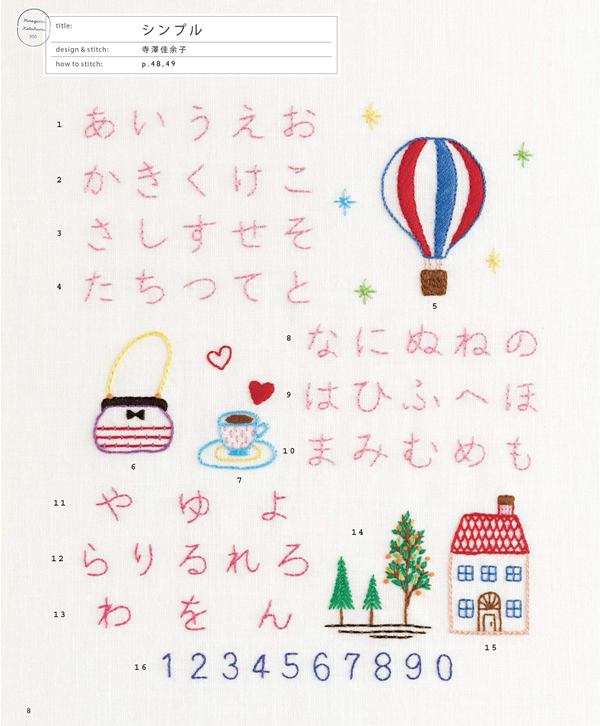 Hiragana
Katakana
350
title: シンプル
design & stitch: 寺澤佳余子
how to stitch: p.48,49
1 あいうえお
2 かきくけこ
3 さしすせそ
4 たちつてと
5
8 なにぬねの
9 はひふへほ
10 まみむめも
6
7
11 やゆよ
12 らりるれろ
13 わをん
14
15
16 1234567890
8